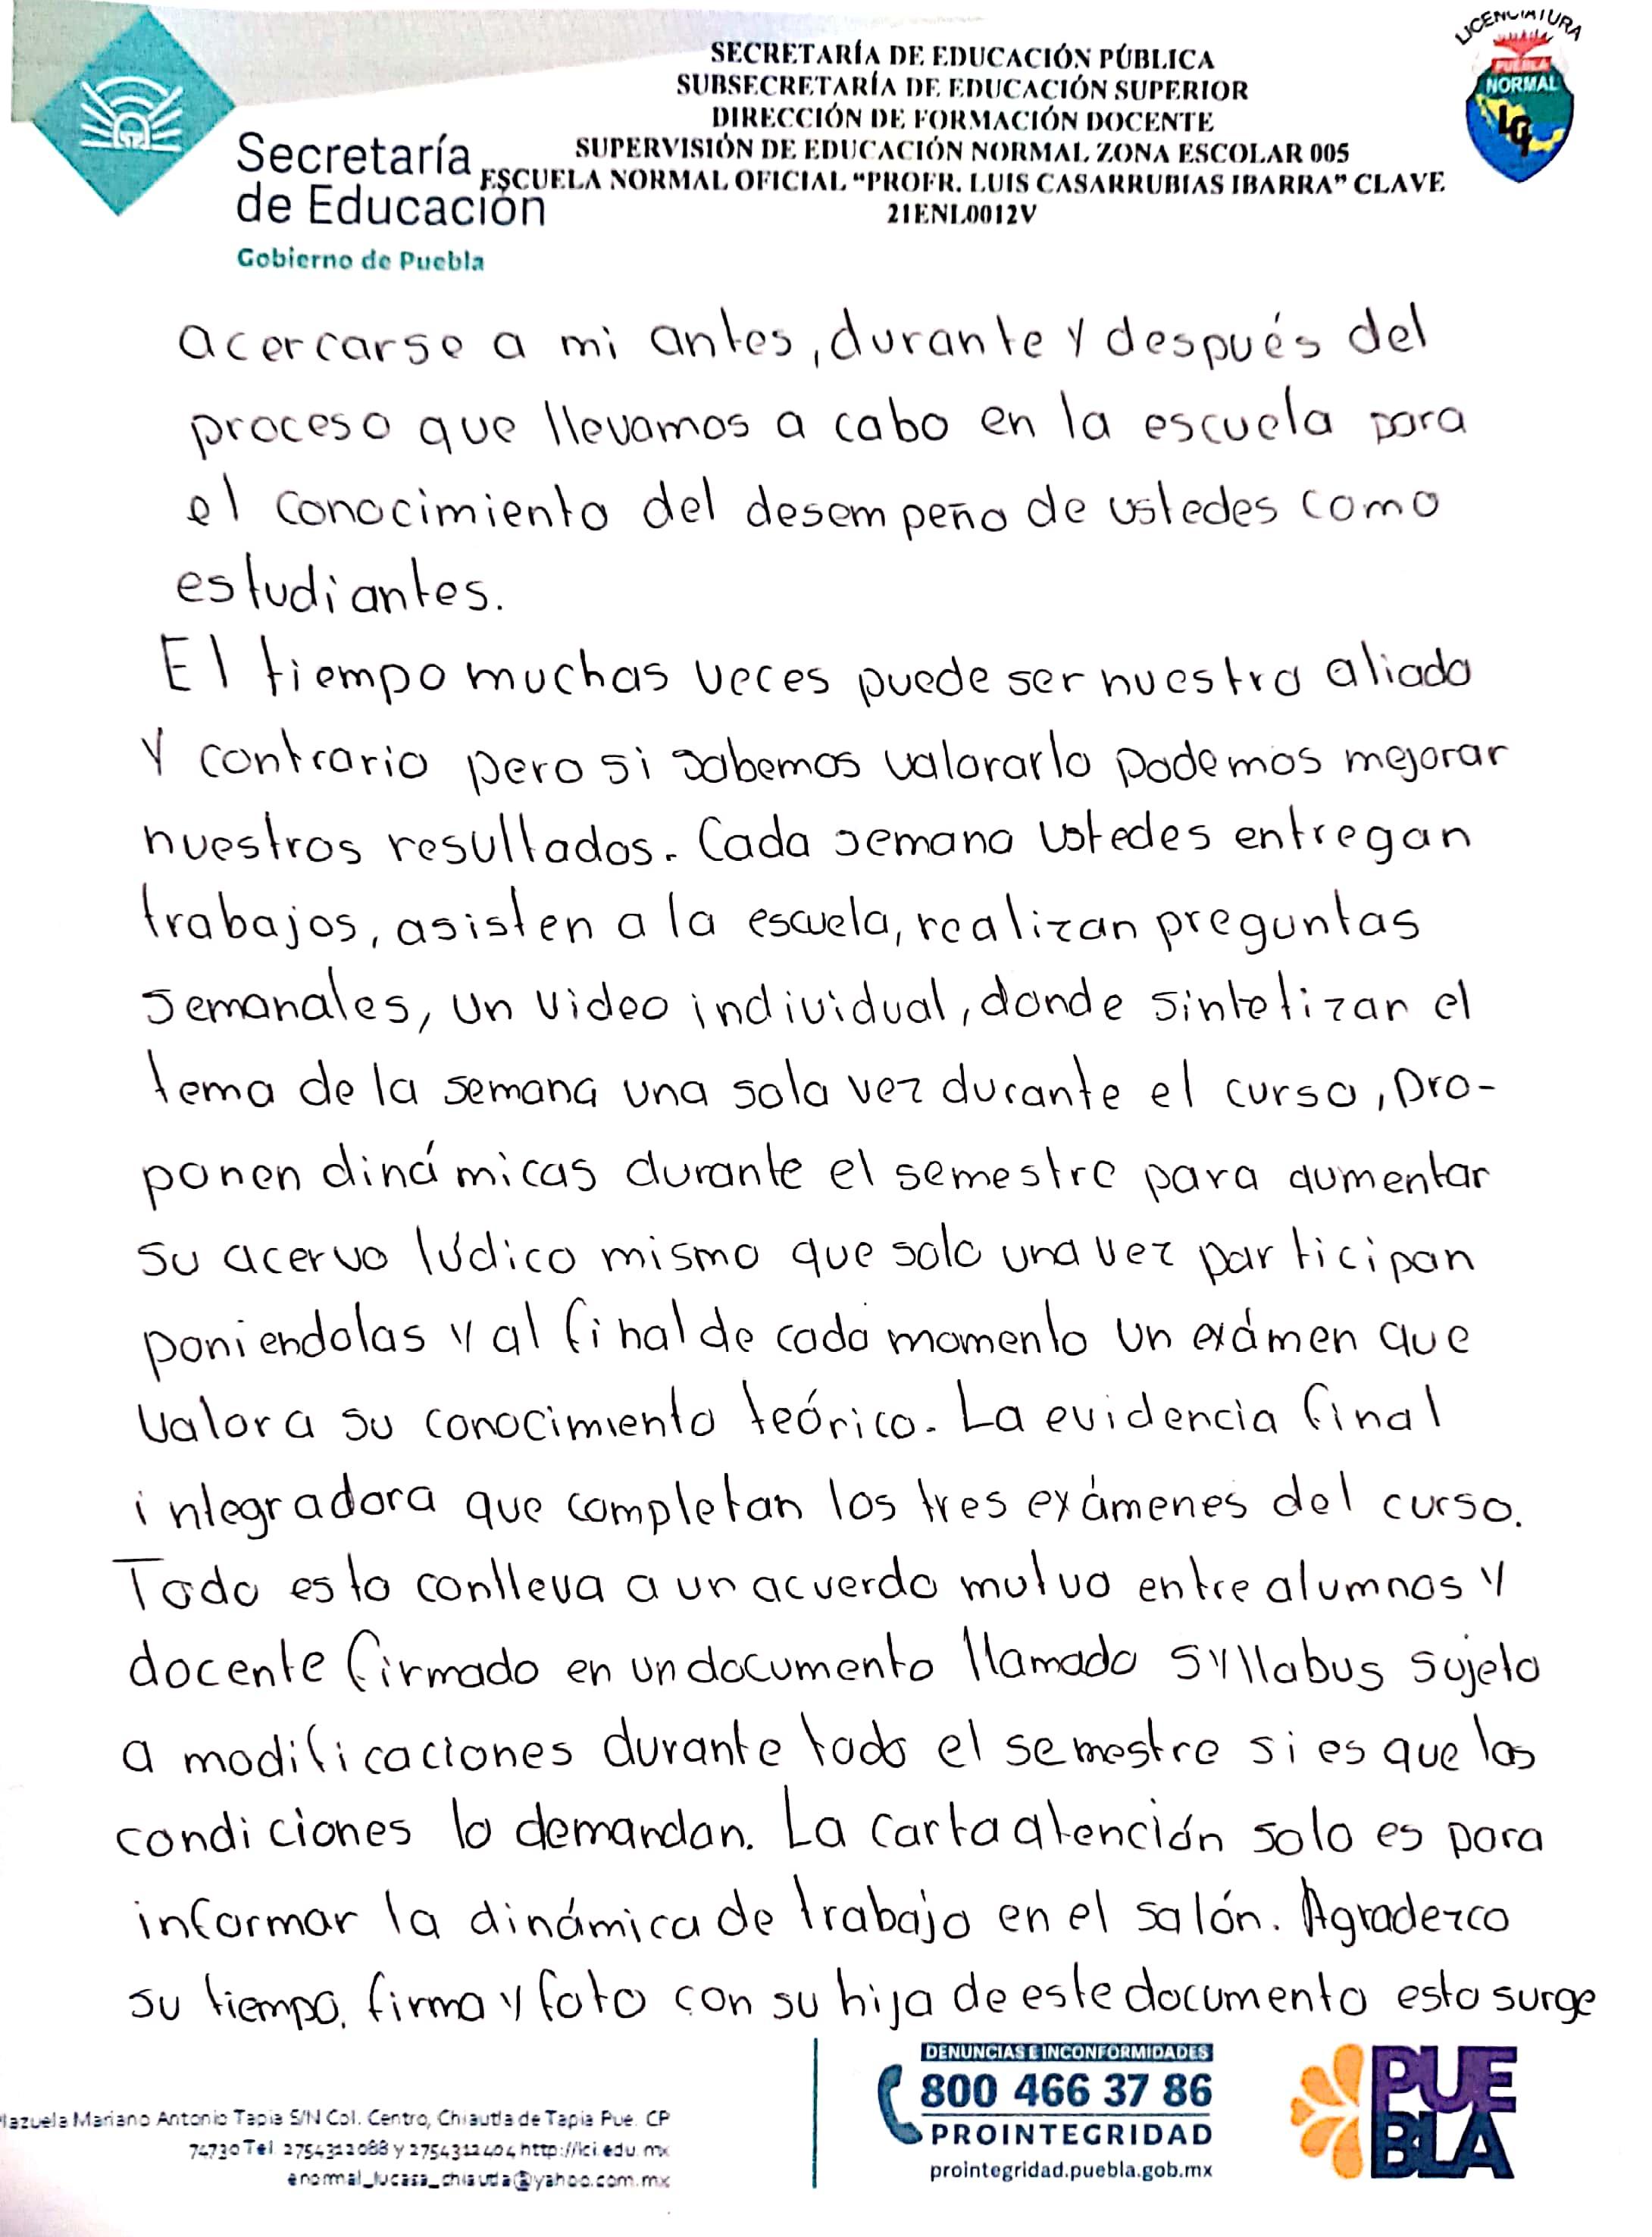 LICENCIATURA
PUEBLA
NORMAL
SECRETARÍA DE EDUCACIÓN PÚBLICA
SUBSECRETARÍA DE EDUCACIÓN SUPERIOR
DIRECCIÓN DE FORMACIÓN DOCENTE
SUPERVISIÓN DE EDUCACIÓN NORMAL ZONA ESCOLAR 005
ESCUELA NORMAL OFICIAL “PROFR. LUIS CASARRUBIAS IBARRA” CLAVE
21ENL0012V
Secretaría
de Educación
Gobierno de Puebla
acercarse a mi antes, durante y después del
proceso que llevamos a cabo en la escuela para
el conocimiento del desempeño de ustedes como
estudiantes.
El tiempo muchas veces puede ser nuestro aliado
y contrario pero si sabemos valorarlo podemos mejorar
nuestros resultados. Cada semana ustedes entregan
trabajos, asisten a la escuela, realizan preguntas
semanales, un video individual, donde sintetizar el
tema de la semana una sola vez durante el curso, pro-
ponen dinámicas durante el semestre para aumentar
su acervo lúdico mismo que solo una vez participan
poniendolas y al final de cada momento un exámen que
valora su conocimiento teórico. La evidencia final
integradora que completan los tres exámenes del curso.
Todo esto conlleva a un acuerdo mutuo entre alumnos y
docente firmado en un documento llamado Syllabus sujeto
a modificaciones durante todo el semestre si es que las
condiciones lo demandan. La carta atención solo es para
informar la dinámica de trabajo en el salón. Agradezco
su tiempo, firma y foto con su hija de este documento esto surge
lazuela Mariano Antonio Tapia S/N Col. Centro, Chiautla de Tapia Pue. CP
74730 Tel. 2754312088 y 2754312404 http://lci.edu.mx
enormal_lucasa_chiautla@yahoo.com.mx
DENUNCIAS E INCONFORMIDADES
800 466 37 86
PROINTEGRIDAD
prointegridad.puebla.gob.mx
PUE
BLA